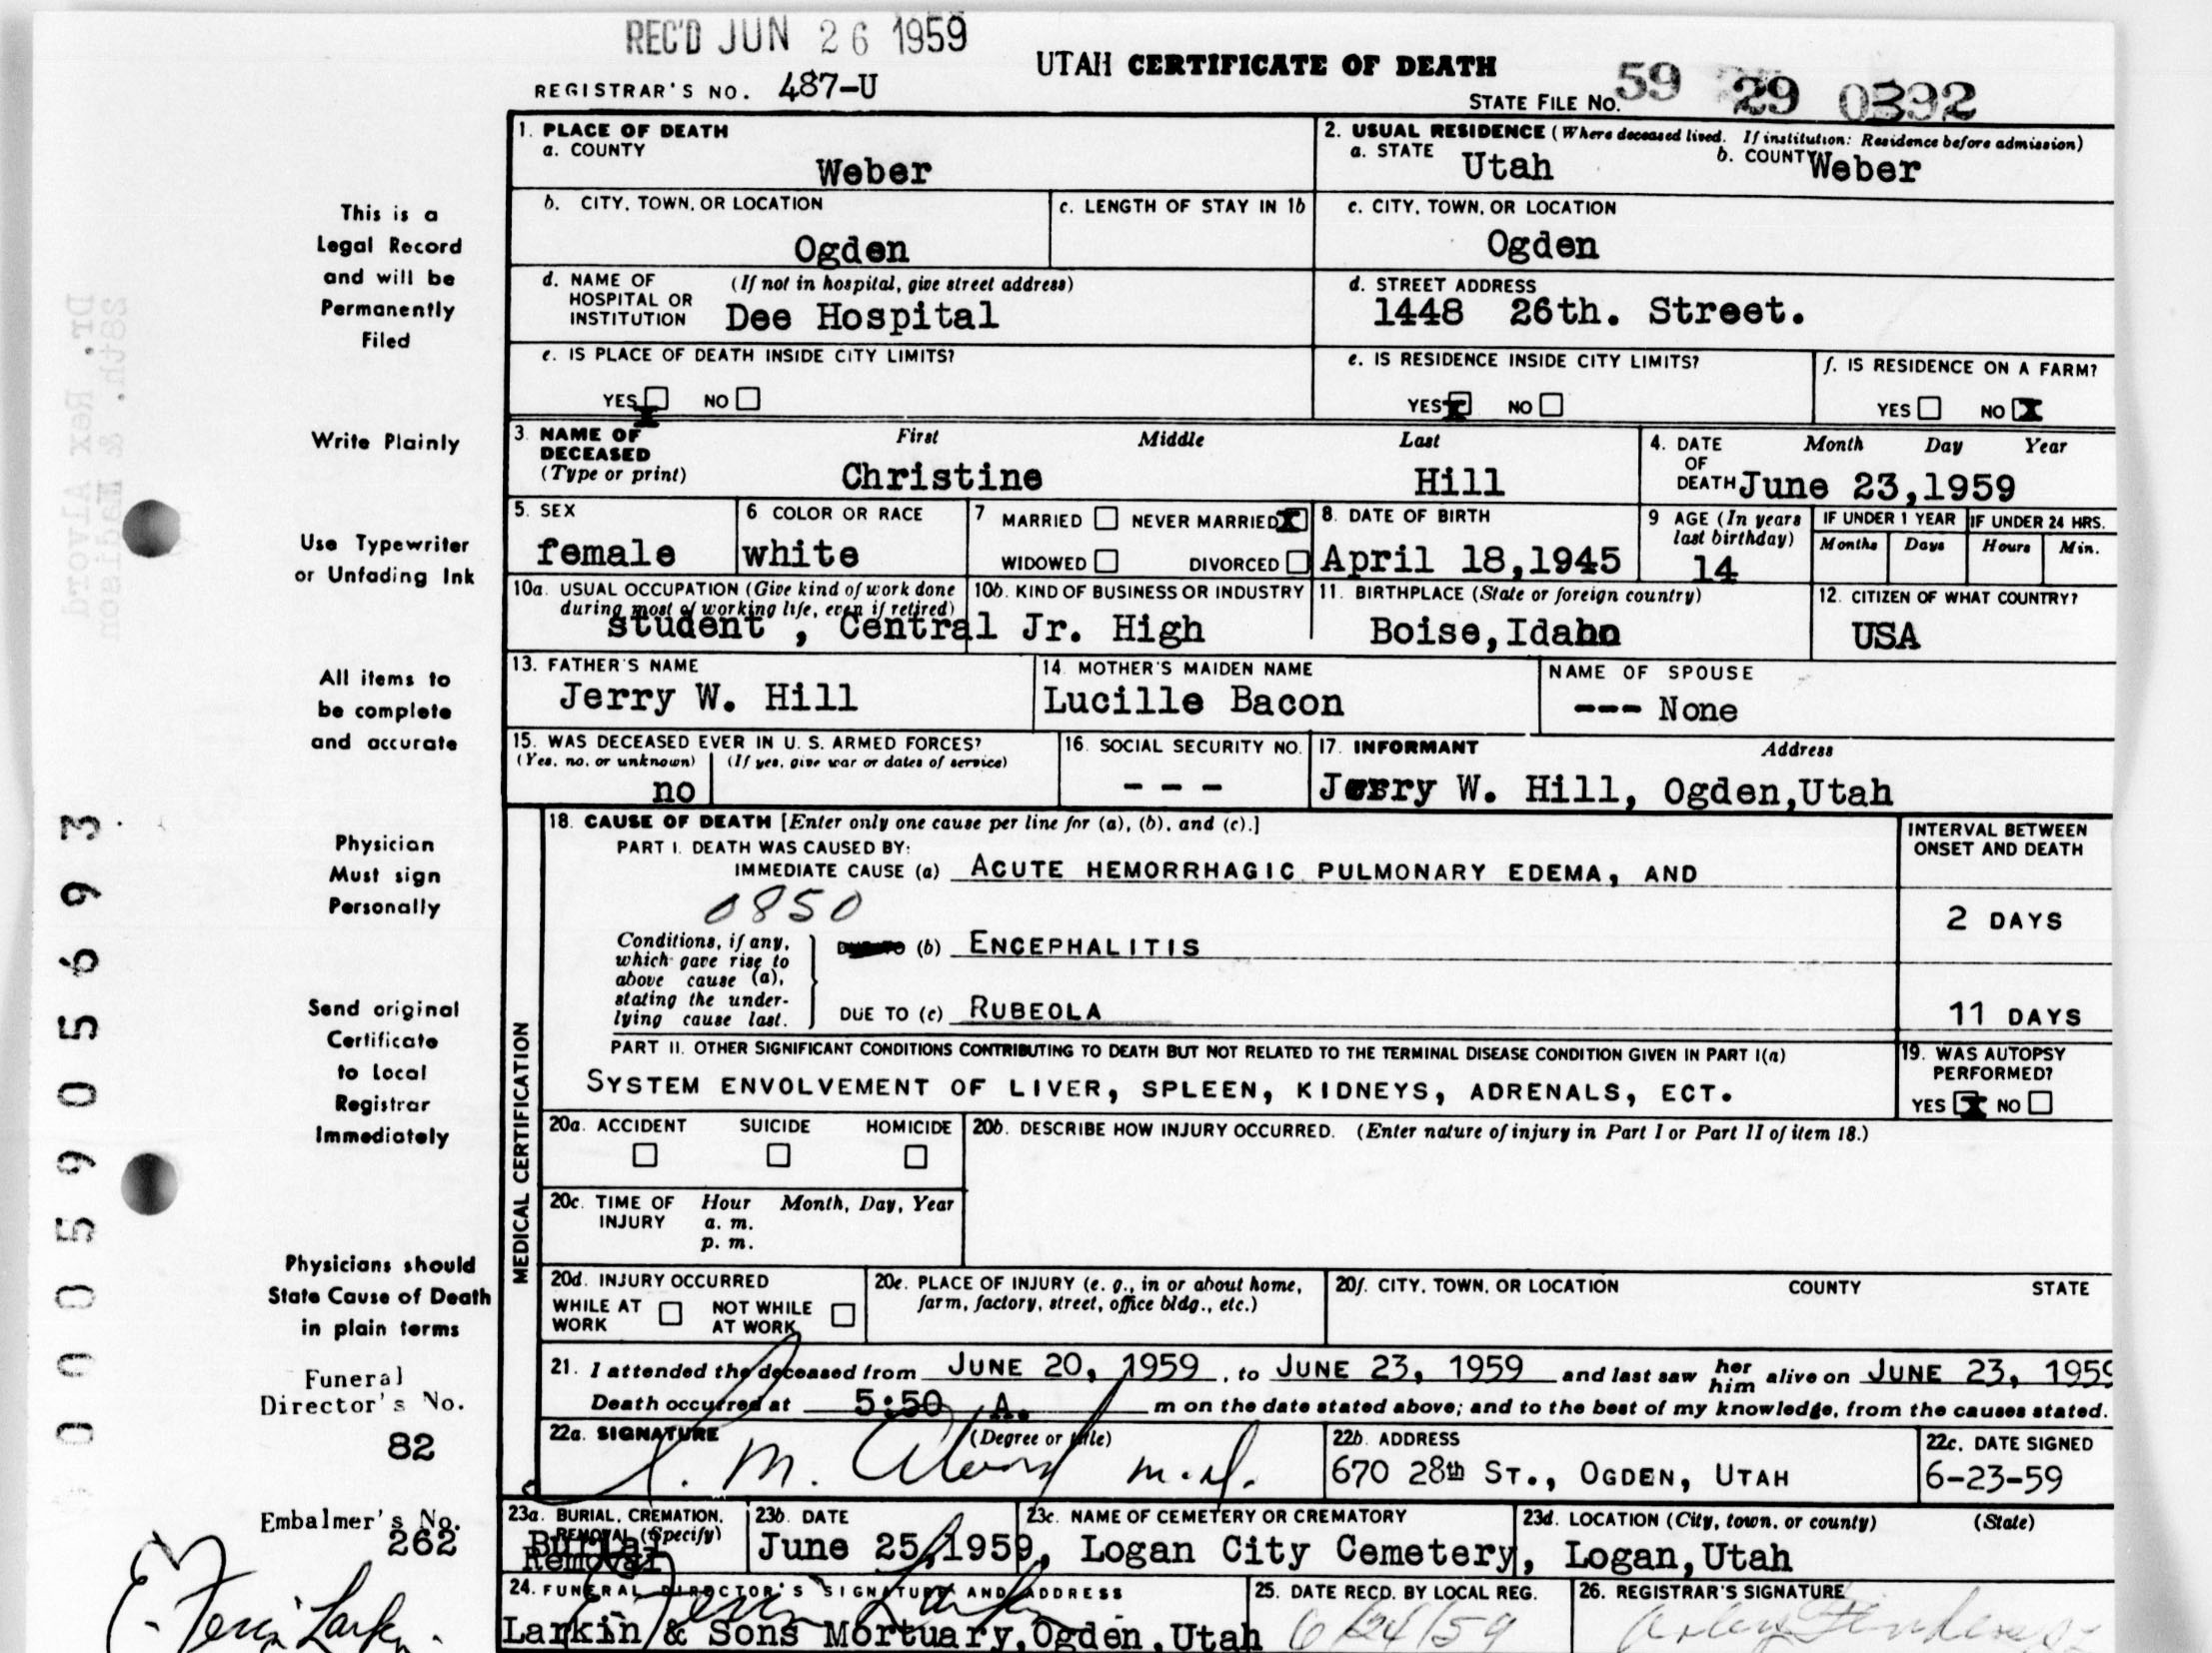 REC'D JUN 26 1959
UTAH CERTIFICATE OF DEATH
REGISTRAR'S NO. 487-U
STATE FILE NO. 59 29 0392
1. PLACE OF DEATH
a. COUNTY
Weber
2. USUAL RESIDENCE (Where deceased lived. If institution: Residence before admission)
a. STATE Utah b. COUNTY Weber
b. CITY, TOWN, OR LOCATION
Ogden
c. LENGTH OF STAY IN 1b
c. CITY, TOWN, OR LOCATION
Ogden
d. NAME OF HOSPITAL OR INSTITUTION (If not in hospital, give street address)
Dee Hospital
d. STREET ADDRESS
1448 26th. Street.
e. IS PLACE OF DEATH INSIDE CITY LIMITS?
YES NO
e. IS RESIDENCE INSIDE CITY LIMITS?
YES NO
f. IS RESIDENCE ON A FARM?
YES NO
3. NAME OF DECEASED (Type or print)
First Middle Last
Christine Hill
4. DATE OF DEATH Month Day Year
June 23,1959
5. SEX
female
6 COLOR OR RACE
white
7 MARRIED NEVER MARRIED
WIDOWED DIVORCED
8. DATE OF BIRTH
April 18,1945
9 AGE (In years last birthday)
14
IF UNDER 1 YEAR
Months Days
IF UNDER 24 HRS.
Hours Min.
10a. USUAL OCCUPATION (Give kind of work done during most of working life, even if retired)
10b. KIND OF BUSINESS OR INDUSTRY
student , Central Jr. High
11. BIRTHPLACE (State or foreign country)
Boise,Idaho
12. CITIZEN OF WHAT COUNTRY?
USA
13. FATHER'S NAME
Jerry W. Hill
14. MOTHER'S MAIDEN NAME
Lucille Bacon
NAME OF SPOUSE
--- None
15. WAS DECEASED EVER IN U. S. ARMED FORCES?
(Yes, no, or unknown) (If yes, give war or dates of service)
no
16. SOCIAL SECURITY NO.
- - -
17. INFORMANT Address
Jerry W. Hill, Ogden,Utah
MEDICAL CERTIFICATION
18. CAUSE OF DEATH [Enter only one cause per line for (a), (b), and (c).]
PART I. DEATH WAS CAUSED BY:
IMMEDIATE CAUSE (a) ACUTE HEMORRHAGIC PULMONARY EDEMA, AND
0850
Conditions, if any, which gave rise to above cause (a), stating the underlying cause last.
(b) ENCEPHALITIS
DUE TO (c) RUBEOLA
INTERVAL BETWEEN ONSET AND DEATH
2 DAYS
11 DAYS
PART II. OTHER SIGNIFICANT CONDITIONS CONTRIBUTING TO DEATH BUT NOT RELATED TO THE TERMINAL DISEASE CONDITION GIVEN IN PART I(a)
SYSTEM ENVOLVEMENT OF LIVER, SPLEEN, KIDNEYS, ADRENALS, ECT.
19. WAS AUTOPSY PERFORMED?
YES NO
20a. ACCIDENT SUICIDE HOMICIDE
20b. DESCRIBE HOW INJURY OCCURRED. (Enter nature of injury in Part I or Part II of item 18.)
20c. TIME OF INJURY Hour Month, Day, Year
a. m.
p. m.
20d. INJURY OCCURRED
WHILE AT WORK NOT WHILE AT WORK
20e. PLACE OF INJURY (e. g., in or about home, farm, factory, street, office bldg., etc.)
20f. CITY, TOWN, OR LOCATION COUNTY STATE
21. I attended the deceased from JUNE 20, 1959, to JUNE 23, 1959 and last saw her him alive on JUNE 23, 1959
Death occurred at 5:50 A. m on the date stated above; and to the best of my knowledge, from the causes stated.
22a. SIGNATURE (Degree or title)
M. Alvord M.D.
22b. ADDRESS
670 28th ST., OGDEN, UTAH
22c. DATE SIGNED
6-23-59
23a. BURIAL, CREMATION, REMOVAL (Specify)
Burial
Removal
23b. DATE
June 25,1959,
23c. NAME OF CEMETERY OR CREMATORY
Logan City Cemetery,
23d. LOCATION (City, town, or county) (State)
Logan,Utah
24. FUNERAL DIRECTOR'S SIGNATURE AND ADDRESS
Larkin & Sons Mortuary,Ogden,Utah
25. DATE RECD. BY LOCAL REG.
6/24/59
26. REGISTRAR'S SIGNATURE
This is a
Legal Record
and will be
Permanently
Filed
Write Plainly
Use Typewriter
or Unfading Ink
All items to
be complete
and accurate
Physician
Must sign
Personally
Send original
Certificate
to Local
Registrar
Immediately
Physicians should
State Cause of Death
in plain terms
Funeral
Director's No.
82
Embalmer's No.
262
Larkin
0005905693
Dr. Rex Alvord
28th. & Madison